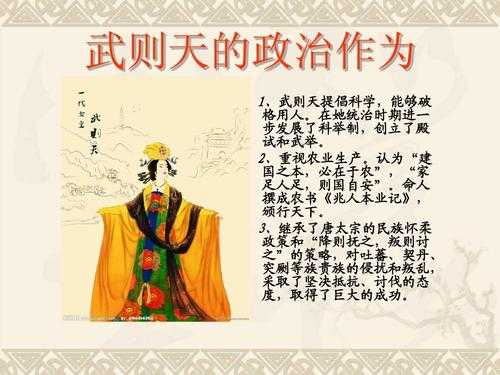 武则天的政治作为
一代女皇
武则天
1、武则天提倡科学，能够破
格用人。在她统治时期进一
步发展了科举制，创立了殿
试和武举。
2、重视农业生产。认为“建
国之本，必在于农”，“家
足人足，则国自安”。命人
撰成农书《兆人本业记》，
颁行天下。
3、继承了唐太宗的民族怀柔
政策和“降则抚之，叛则讨
之”的策略，对吐蕃、契丹、
突厥等族贵族的侵扰和叛乱，
采取了坚决抵抗、讨伐的态
度，取得了巨大的成功。